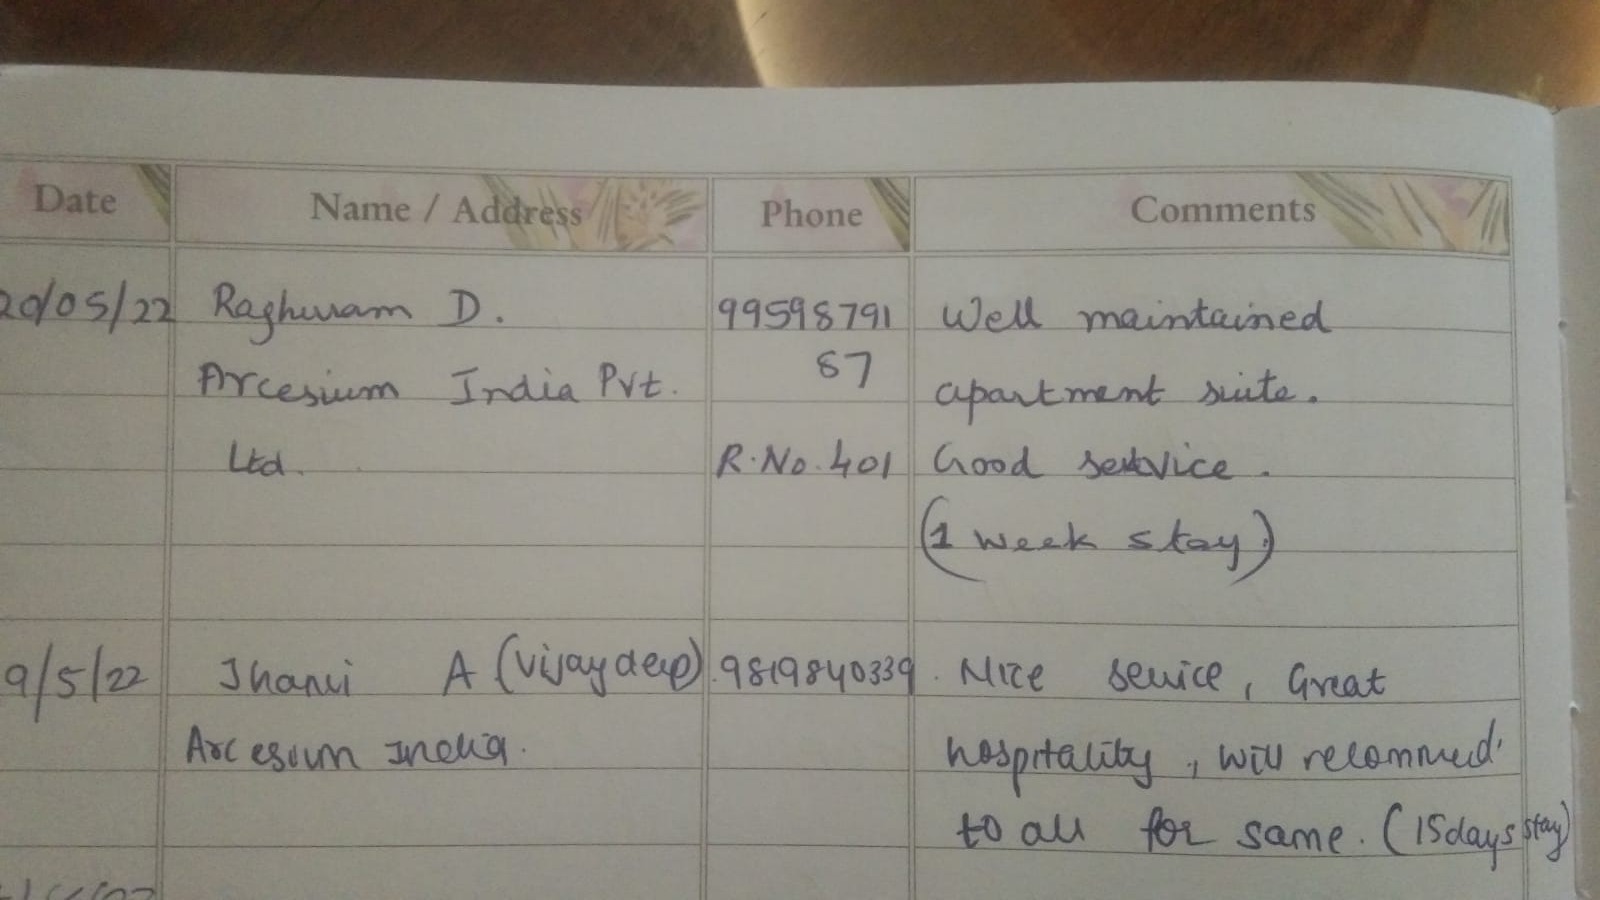 Date Name / Address Phone Comments
20/05/22 Raghuram D. 99598791 Well maintained
87
Arcesium India Pvt. apartment suite.
Ltd. R.No.401 Good service.
(1 week stay)
9/5/22 Jhanvi A (Vijaydeep) 9819840339 Nice service, Great
Arcesium India. hospitality, will recommed
to all for same. (15days stay)